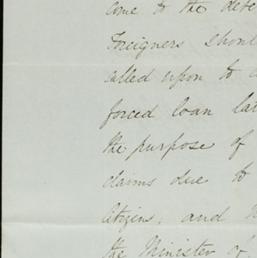 come to the dete
Foreigners shoul
called upon to c
forced loan lat
the purpose of
claims due to
Citizens, and
the Minister of